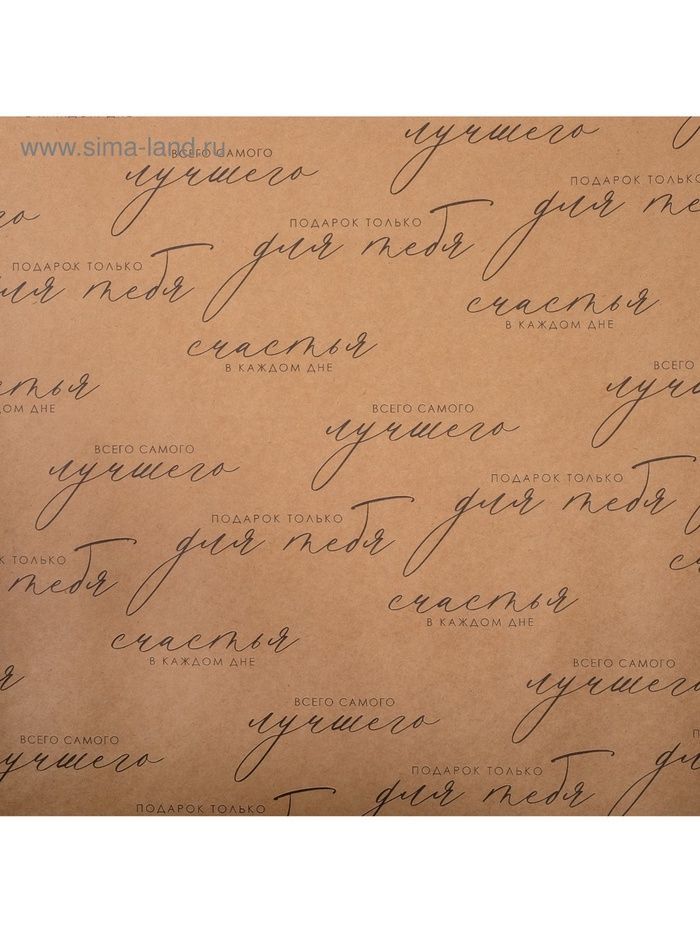 В КАЖДОМ ДНЕ
www.sima-land.ru
лучшего
ВСЕГО САМОГО
лучшего
ПОДАРОК ТОЛЬКО
для те
ПОДАРОК ТОЛЬКО
для тебя
ПОДАРОК ТОЛЬКО
для тебя
счастья
В КАЖДОМ ДНЕ
счастья
В КАЖДОМ ДНЕ
стья
ОМ ДНЕ
ВСЕГО
лучш
ВСЕГО САМОГО
лучшего
ВСЕГО САМОГО
лучшего
ПОДАРОК ТОЛЬКО
для тебя
ПОДАРОК ТОЛЬКО
для тебя
К ТОЛЬКО
тебя
сч
счастья
В КАЖДОМ ДНЕ
счастья
В КАЖДОМ ДНЕ
ВСЕГО САМОГО
лучшего
я
ВСЕГО САМОГО
лучшего
ВСЕГО САМОГО
лучшего
П
дл
ПОДАРОК ТОЛЬКО
для тебя
ПОДАРОК ТОЛЬКО